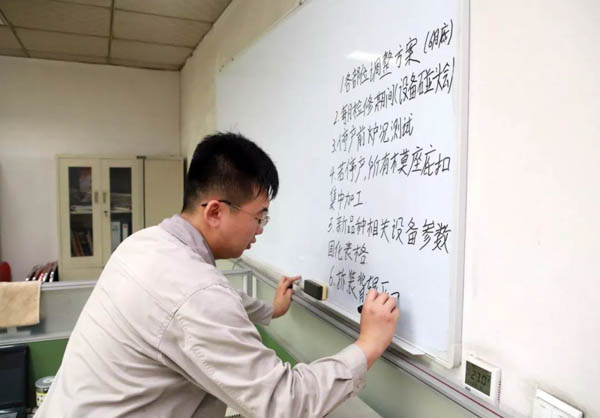 1.各部位调整方案(6月底)
2.每月检修期间(设备碰头会)
3.停产前炉况测试
4.若停产,所有木模座底扣
集中加工
5.新品种相关设备参数
固化表格
6.拆装